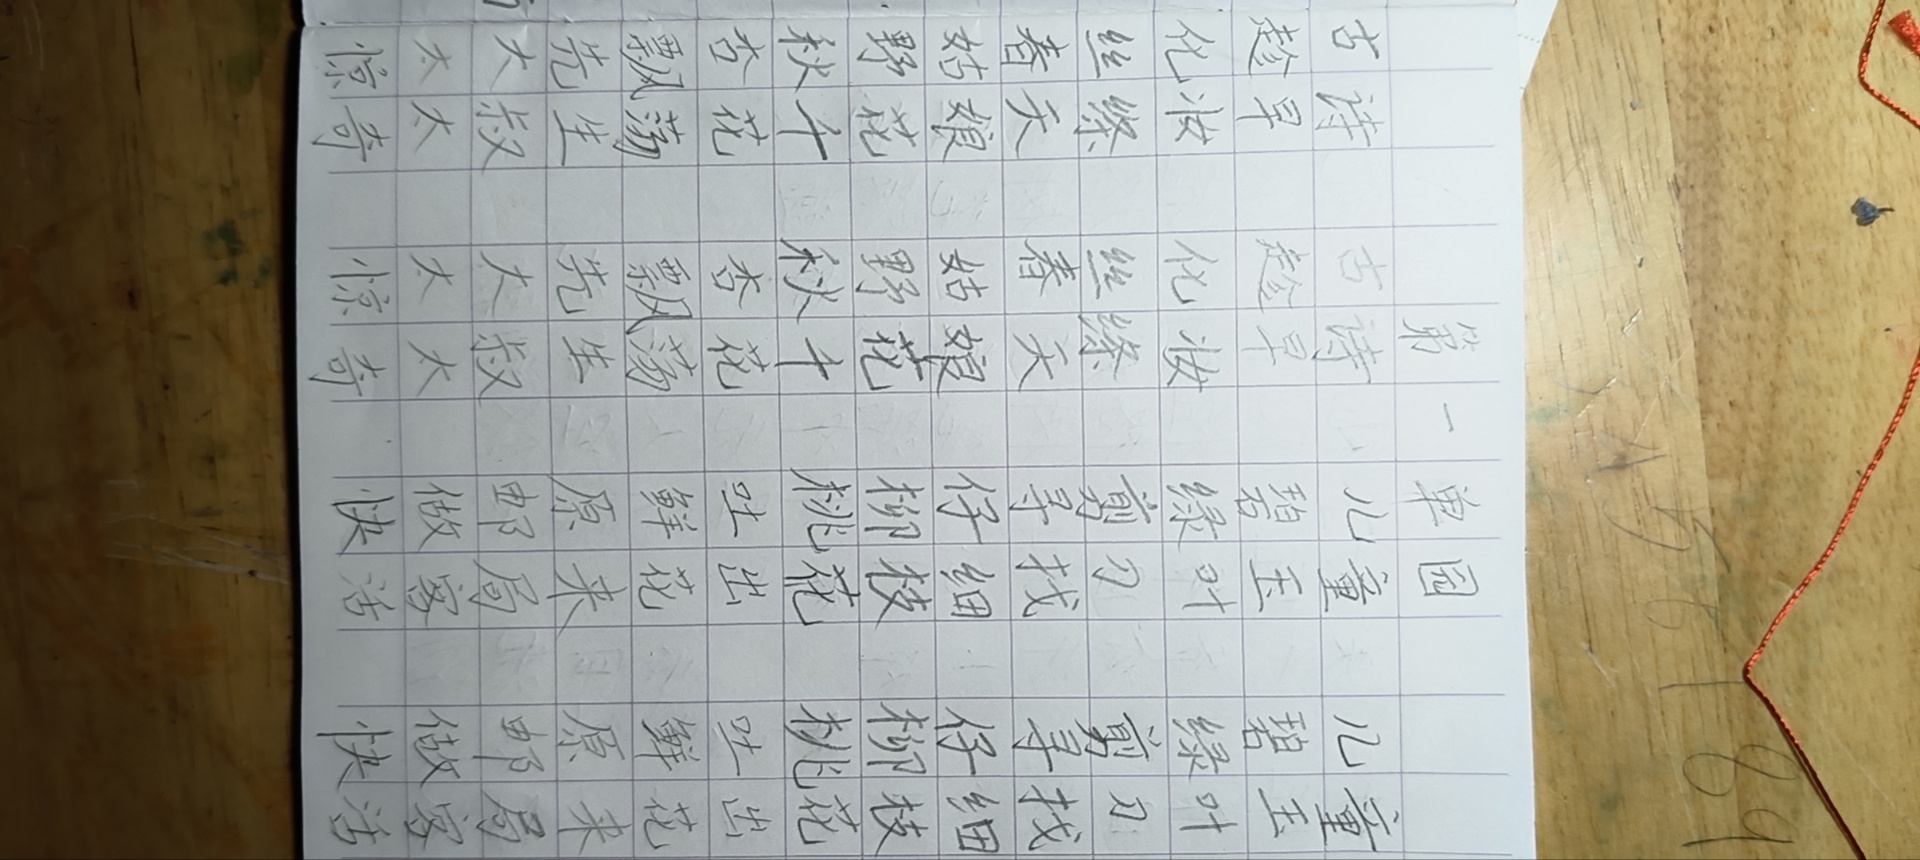 第一单园
古诗 古诗 儿童 儿童
趁早 趁早 碧玉 碧玉
化妆 化妆 绿叶 绿叶
丝绦 丝绦 剪刀 剪刀
春天 春天 寻找 寻找
姑娘 姑娘 仔细 仔细
野花 野花 柳枝 柳枝
秋千 秋千 桃花 桃花
杏花 杏花 吐出 吐出
飘荡 飘荡 鲜花 鲜花
先生 先生 原来 原来
大叔 大叔 邮局 邮局
太太 太太 做客 做客
惊奇 惊奇 快活 快活